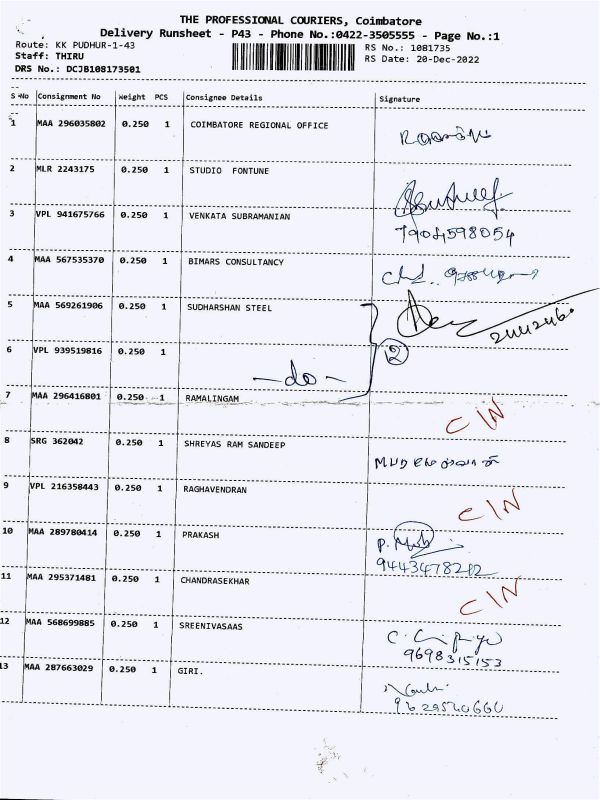 THE PROFESSIONAL COURIERS, Coimbatore
Delivery Runsheet - P43 - Phone No.:0422-3505555 - Page No.:1
Route: KK PUDHUR-1-43 RS No.: 1081735
Staff: THIRU RS Date: 20-Dec-2022
DRS No.: DCJB108173501
S No Consignment No Weight PCS Consignee Details Signature
1 MAA 296035802 0.250 1 COIMBATORE REGIONAL OFFICE
2 MLR 2243175 0.250 1 STUDIO FONTUNE
3 VPL 941675766 0.250 1 VENKATA SUBRAMANIAN 7904598054
4 MAA 567535370 0.250 1 BIMARS CONSULTANCY
5 MAA 569261906 0.250 1 SUDHARSHAN STEEL
6 VPL 939519816 0.250 1 -do- 2
7 MAA 296416801 0.250 1 RAMALINGAM CIN
8 SRG 362042 0.250 1 SHREYAS RAM SANDEEP
9 VPL 216358443 0.250 1 RAGHAVENDRAN CIN
10 MAA 289780414 0.250 1 PRAKASH
9443478212
11 MAA 295371481 0.250 1 CHANDRASEKHAR CIN
12 MAA 568699885 0.250 1 SREENIVASAAS
9698315153
13 MAA 287663029 0.250 1 GIRI.